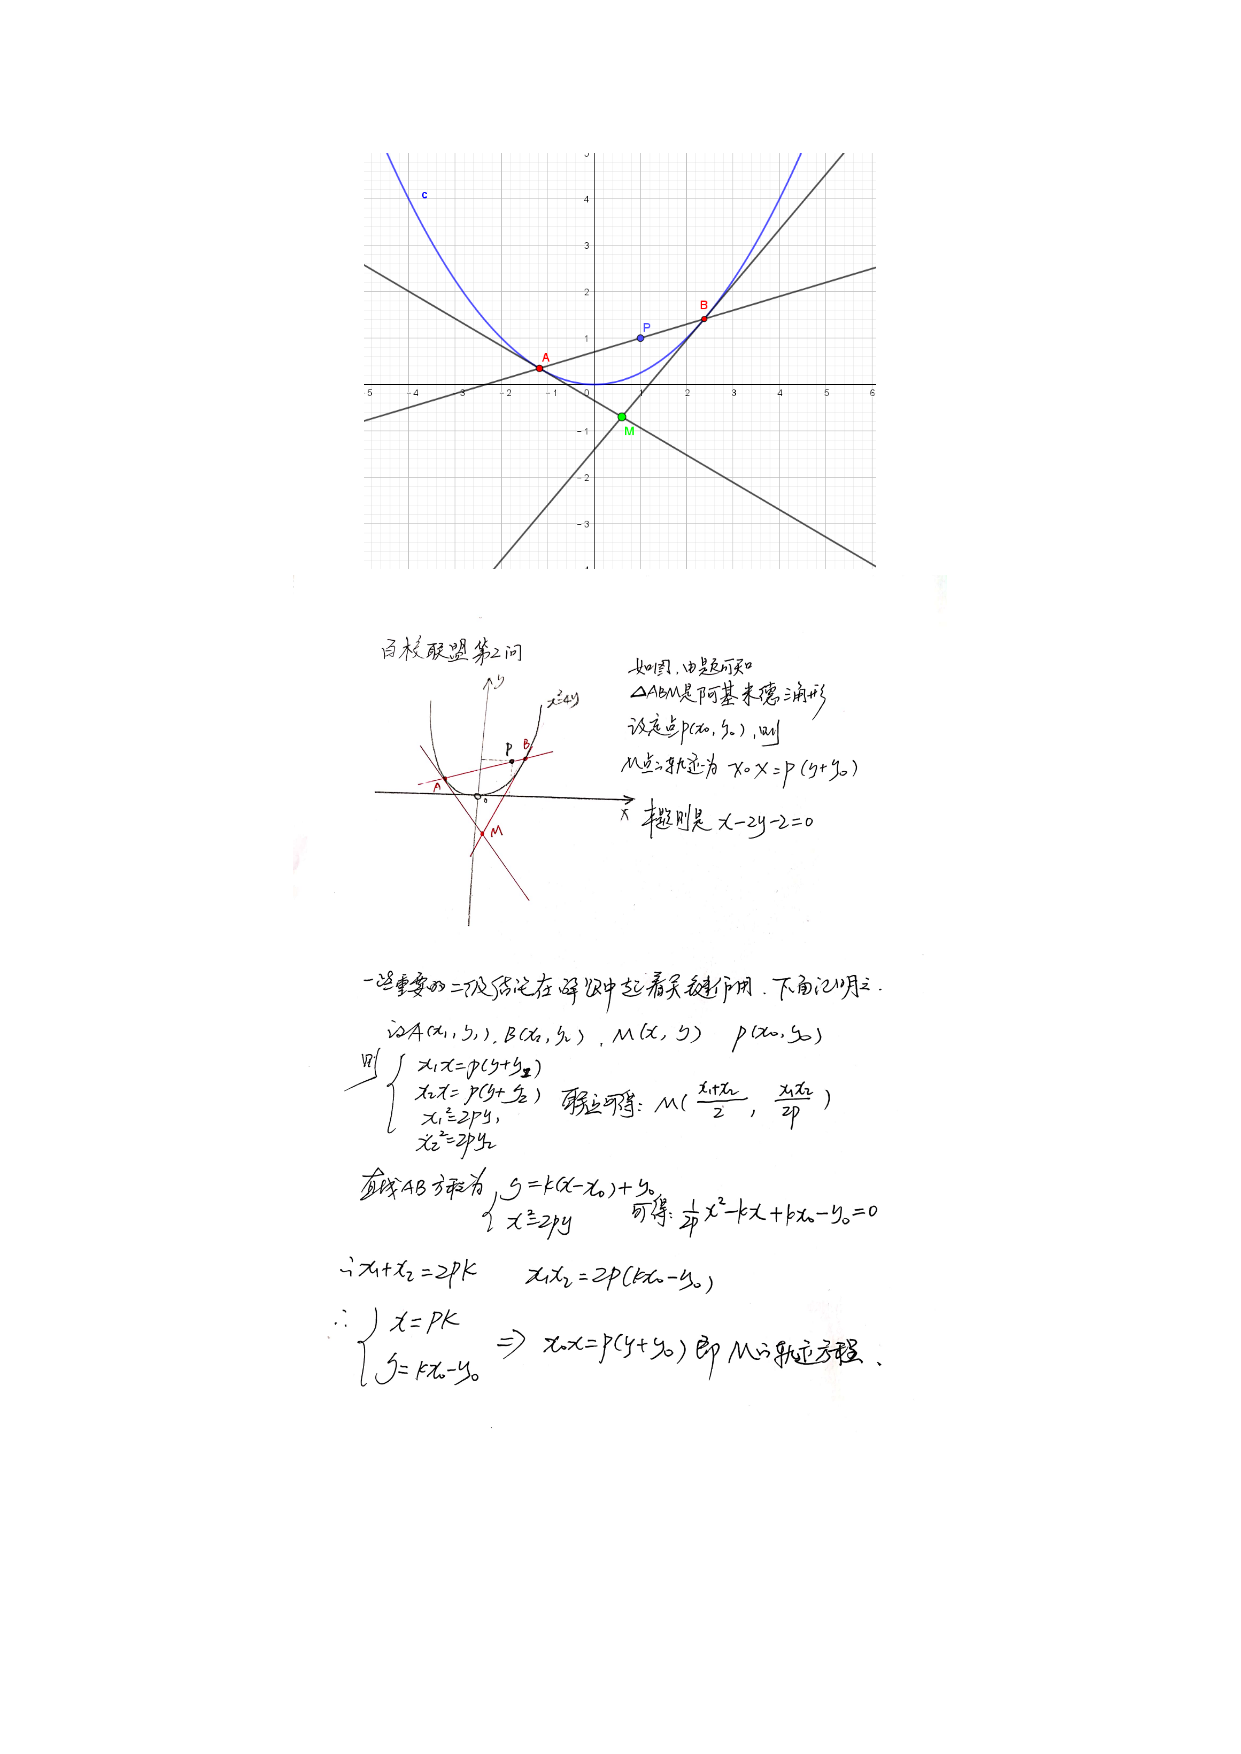 c
5
4
3
2
B
P
1
A
5 −4 3 −2 −1 0 1 2 3 4 5 6
M
−1
−2
−3
4
百校联盟第2问
y
x²=4y
P
B
A
0
x
M
如图,由题可知
△ABM是阿基米德三角形
设定点P(x₀, y₀),则
M点的轨迹为 x₀x=p(y+y₀)
本题则是 x-2y-2=0
一些重要的二级结论在解题中起着关键作用.下面证明之.
设A(x₁, y₁), B(x₂, y₂), M(x, y) P(x₀, y₀)
则 { x₁x=p(y+y₁)
x₂x=p(y+y₂) 联立可得: M( (x₁+x₂)/2 , x₁x₂/2p )
x₁²=2py₁
x₂²=2py₂
直线AB方程为 { y=k(x-x₀)+y₀
x²=2py 可得: 1/2p x²-kx+kx₀-y₀=0
∴x₁+x₂=2pk x₁x₂=2p(kx₀-y₀)
∴ { x=pk
y=kx₀-y₀ ⇒ x₀x=p(y+y₀) 即M的轨迹方程.